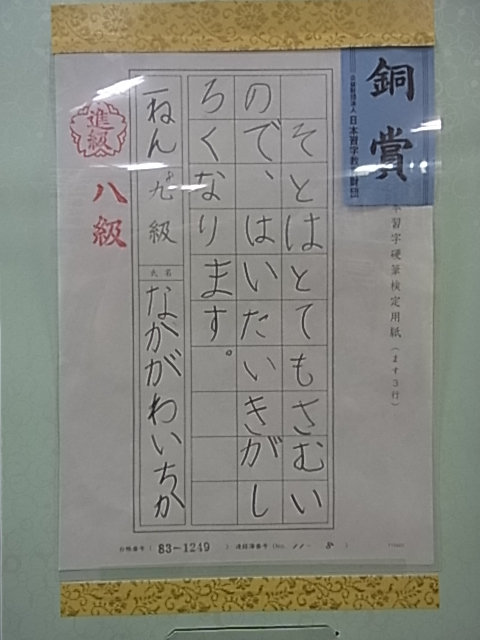 銅賞
公益財団法人 日本習字教育財団
習字硬筆検定用紙(ます3行)
そとはとてもさむい
ので、はいたいきがし
ろくなります。
一ねん 九級
氏名
なかがわいちか
進級
八級
台帳番号( 83-1249 )